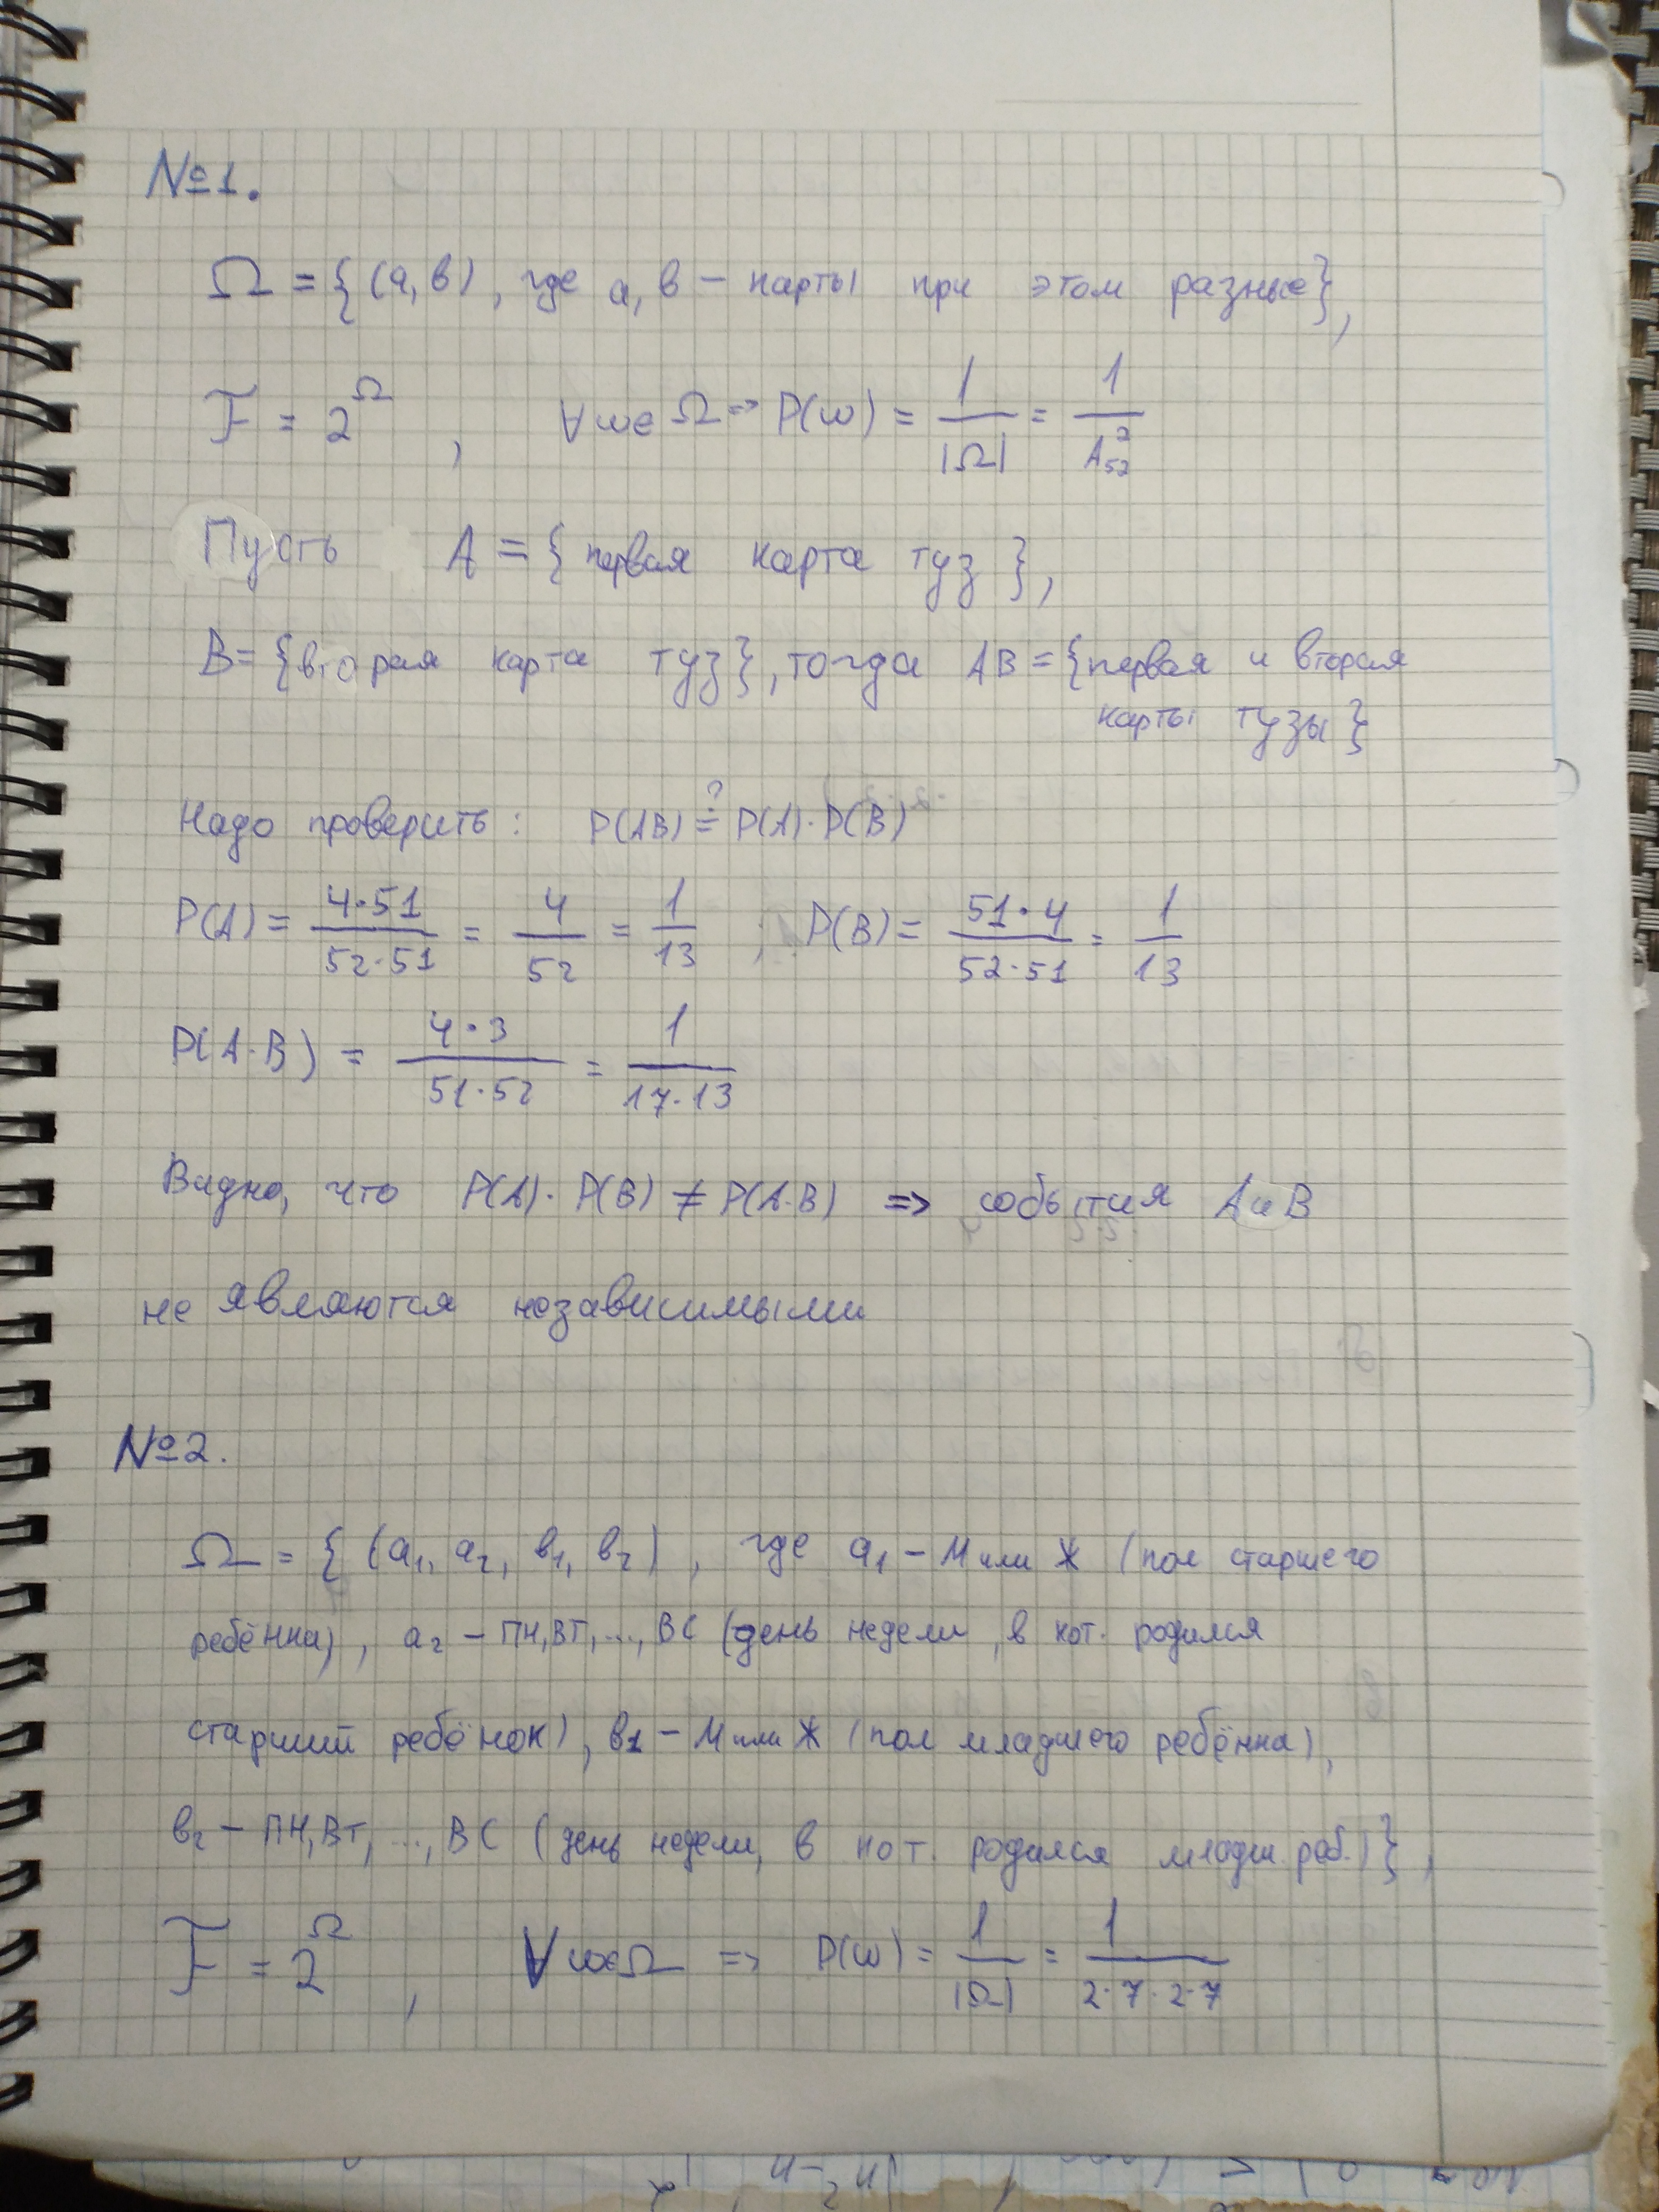 №1.
Ω = {(a,b), где a, b – карты при этом разные},
F = 2^Ω , ∀ω∈Ω => P(ω) = 1/|Ω| = 1/A₅₂²
Пусть A = {первая карта туз},
B = {вторая карта туз}, тогда AB = {первая и вторая
карты тузы}
Надо проверить: P(AB) ≟ P(A)·P(B)
P(A) = 4·51/52·51 = 4/52 = 1/13 ; P(B) = 51·4/52·51 = 1/13
P(A·B) = 4·3/51·52 = 1/17·13
Видно, что P(A)·P(B) ≠ P(A·B) => события A и B
не являются независимыми
№2.
Ω = {(a₁, a₂, b₁, b₂), где a₁ – М или Ж (пол старшего
ребёнка), a₂ – ПН, ВТ, ..., ВС (день недели, в кот. родился
старший ребёнок), b₁ – М или Ж (пол младшего ребёнка),
b₂ – ПН, ВТ, ..., ВС (день недели, в кот. родился младш. реб.)},
F = 2^Ω , ∀ω∈Ω => P(ω) = 1/|Ω| = 1/2·7·2·7